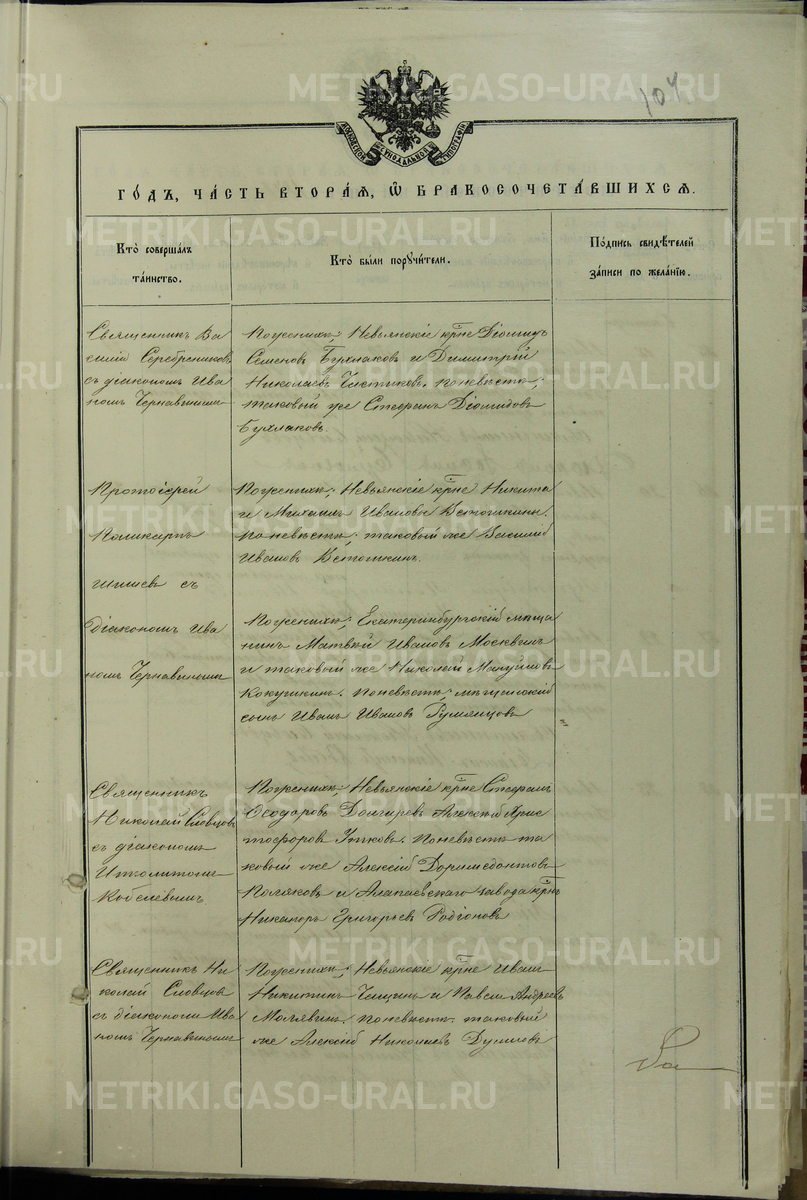 METRIKI.GASO-URAL.RU
104
МОСКОВСКОЙ СѴНОДАЛЬНОЙ ТИПОГРАФІИ
ГО́ДЪ, ЧА́СТЬ ВТОРА́Ѧ, Ѽ БРАКОСОЧЕТА́ВШИХСѦ.
Кто̀ совершáлъ
тáинство.
Кто̀ были порꙋчи́тели.
По́дпись свидѣ́телей
зáписи по желáнїю.
Священникъ Ва
силій Серебренниковъ
съ діакономъ Ива
номъ Чернавинымъ
По женихѣ: Невьянскіе кр̃не Діомидъ
Семеновъ Бухлаковъ и Димитрій
Николаевъ Чистяковъ, по невѣстѣ:
таковый же Стефанъ Діомидовъ
Бухлаковъ.
Протоіерей
Поликарпъ
съ
діакономъ Ива
номъ Чернавинымъ
По женихѣ: Невьянскіе кр̃не Никита
и Михаилъ Ивановы
По невѣстѣ: таковый же Василій
Ивановъ
По женихѣ: Екатеринбургскій мѣща
нинъ Матвѣй Ивановъ Москвинъ
и таковый же Николай Мануйловъ
Кокушкинъ. По невѣстѣ: мѣщанскій
сынъ Иванъ Ивановъ Румянцовъ
Священникъ
Николай Словцовъ
съ діакономъ
Ипполитомъ
Кобелевымъ
По женихѣ: Невьянскіе кр̃не Стефанъ
Ѳеодоровъ Алексій Хрис
тофоровъ По невѣстѣ та
ковый же Алексій Доримедонтовъ
Поляковъ и Алапаевскаго завода кр̃нъ
Никаноръ Григорьевъ Родіоновъ
Священникъ Ни
колай Словцовъ
съ діакономъ Ива
номъ Чернавинымъ
По женихѣ: Невьянскіе кр̃не Иванъ
Никитинъ и Павелъ Андреевъ
Малявинъ. По невѣстѣ: таковый
же Алексій Николаевъ